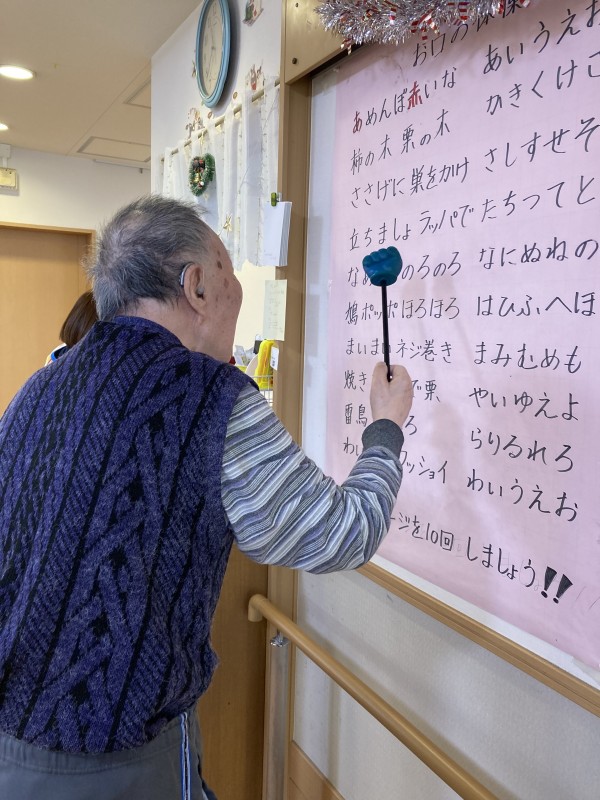 お口の
あめんぼ赤いな あいうえお
柿の木栗の木 かきくけこ
ささげに巣をかけ さしすせそ
立ちましょラッパで たちつてと
な のろのろ なにぬねの
鳩ポッポほろほろ はひふへほ
まいまいネジ巻き まみむめも
焼き で栗 やいゆえよ
雷鳥 ろ らりるれろ
わい ッショイ わいうえお
ージを10回 しましょう!!